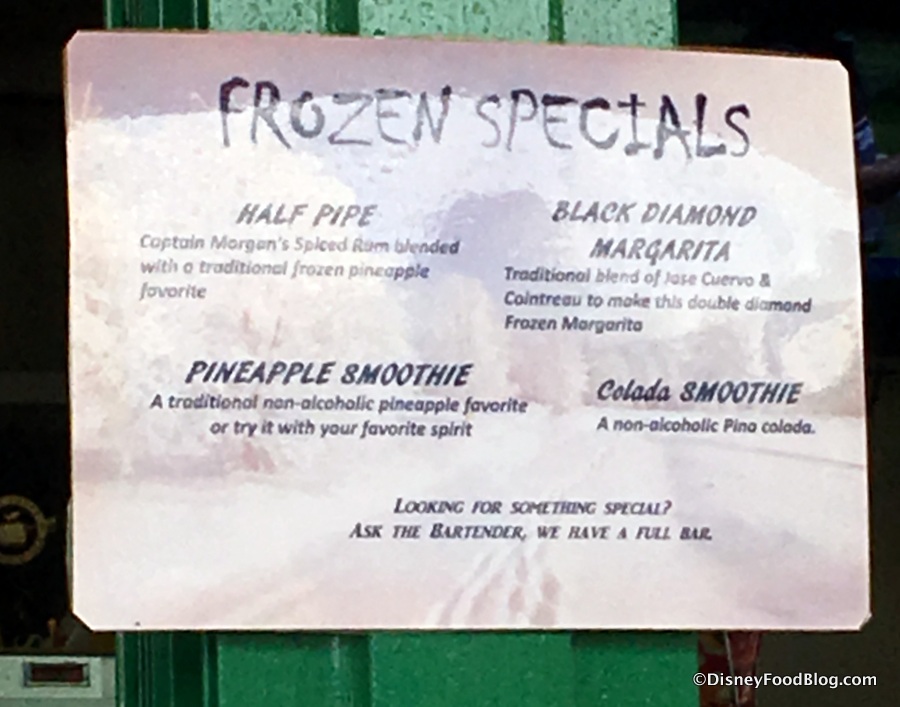 FROZEN SPECIALS
HALF PIPE
Captain Morgan's Spiced Rum blended
with a traditional frozen pineapple
favorite
BLACK DIAMOND
MARGARITA
Traditional blend of Jose Cuervo &
Cointreau to make this double diamond
Frozen Margarita
PINEAPPLE SMOOTHIE
A traditional non-alcoholic pineapple favorite
or try it with your favorite spirit
Colada SMOOTHIE
A non-alcoholic Pina colada.
LOOKING FOR SOMETHING SPECIAL?
ASK THE BARTENDER, WE HAVE A FULL BAR.
©DisneyFoodBlog.com